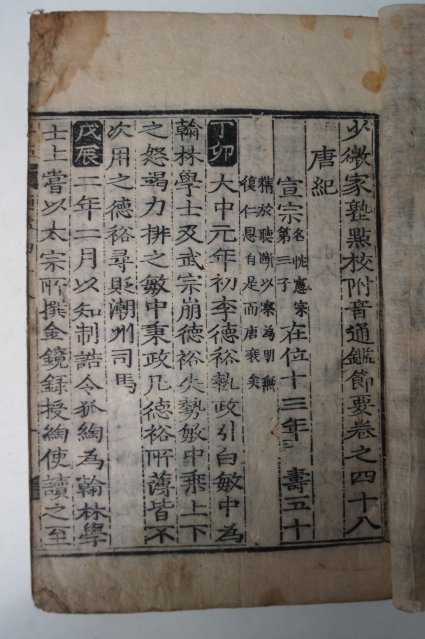 少微家塾點校附音通鑑節要卷之四十八
唐紀
宣宗名忱憲宗第三子在位十三年 壽五十
精於聽斷以察為明無
復仁恩自是而唐衰矣
丁卯 大中元年初李德裕執政引白敏中為
翰林學士及武宗崩德裕失勢敏中乘上下
之怨竭力排之敏中秉政凡德裕所薄皆不
次用之德裕尋貶潮州司馬
戊辰 二年二月以知制誥令狐綯為翰林學
士上嘗以太宗所撰金鏡錄授綯使讀之至